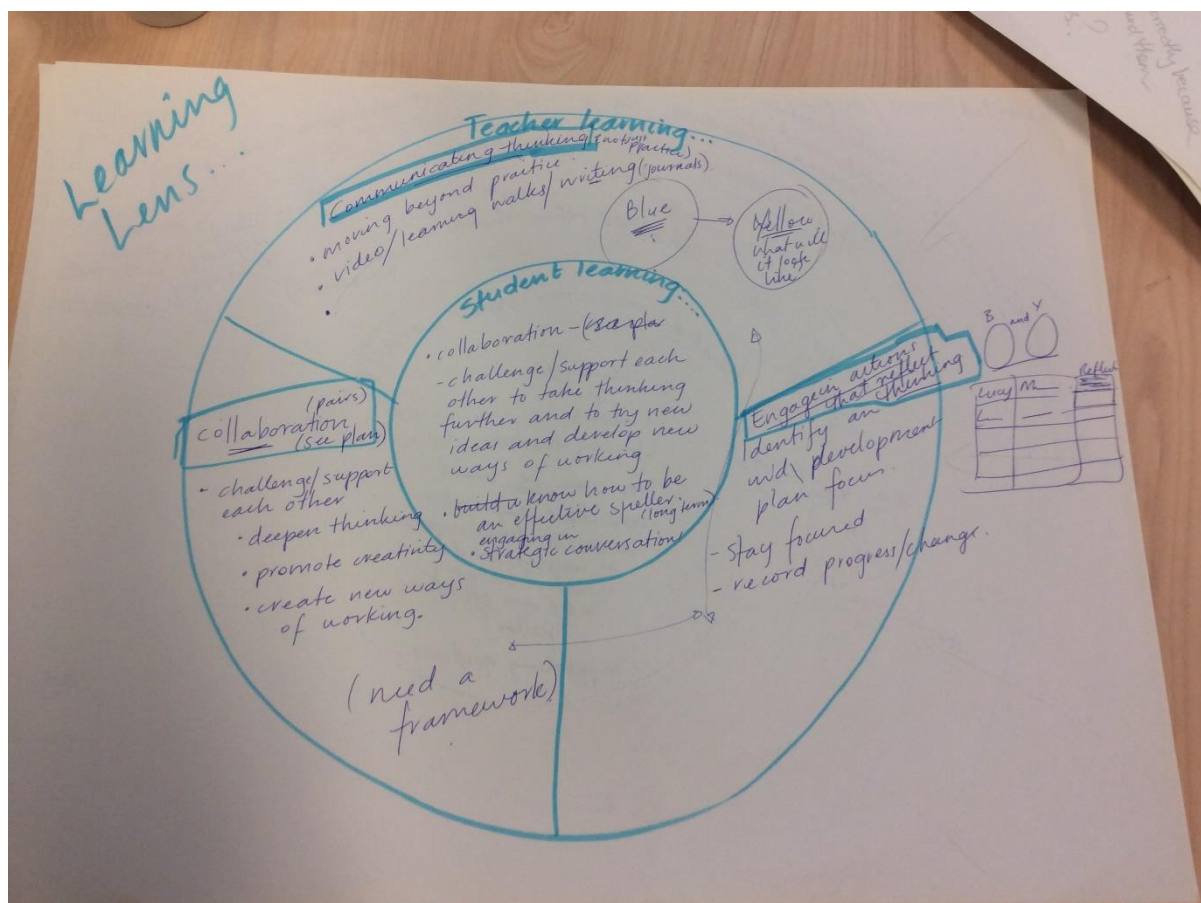 Learning
Lens...
Teacher learning...
Communicating thinking (not just
practice)
• moving beyond practice
• video/learning walks/writing (journals)
•
Blue
Yellow
what will
it look
like
Student learning...
• collaboration - (see plan
- challenge/support each
other to take thinking
further and to try new
ideas and develop new
ways of working
• build a know how to be
an effective speller
(long term)
engaging in
• strategic conversations
(pairs)
collaboration
(see plan)
- challenge/support
each other
• deepen thinking
• promote creativity
• create new ways
of working.
(need a
framework)
Engage in actions
that reflect
thinking
Identify an
development
plan focus
- stay focused
- record progress/change.
B and Y
Lucy M
Reflect
L